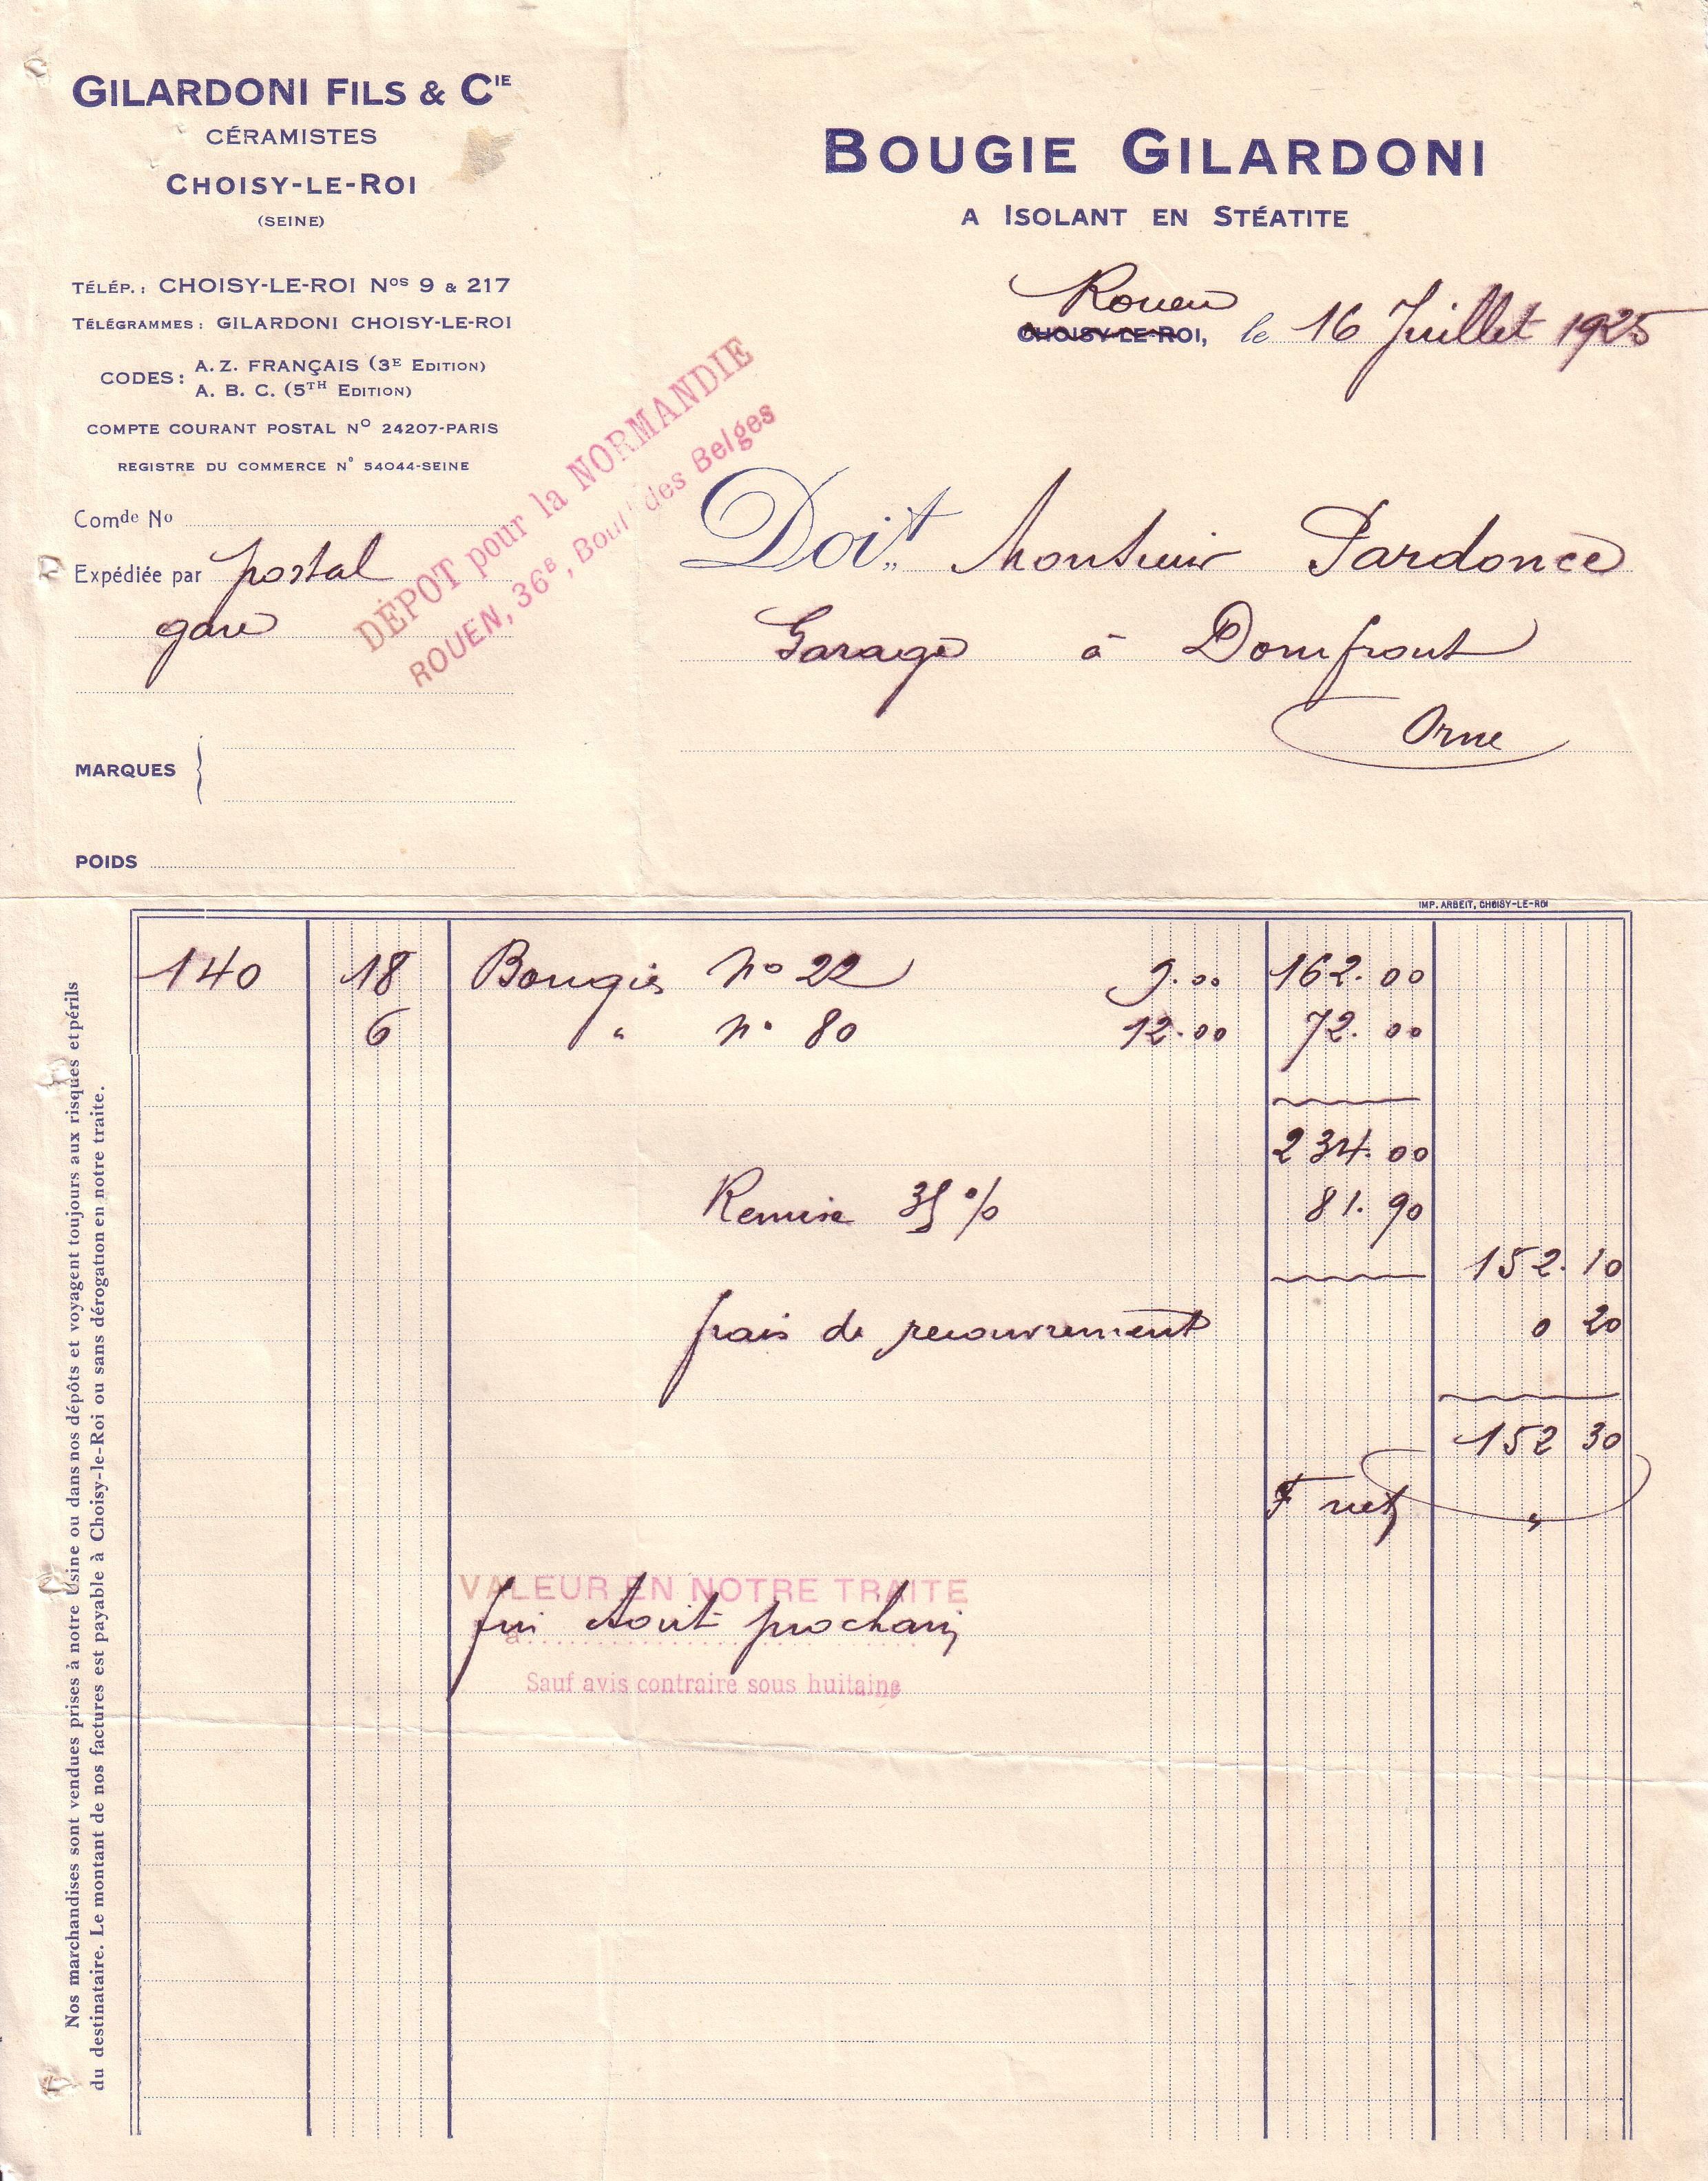 GILARDONI FILS & CIE
CÉRAMISTES
CHOISY-LE-ROI
(SEINE)
TÉLÉP.: CHOISY-LE-ROI Nos 9 & 217
TÉLÉGRAMMES: GILARDONI CHOISY-LE-ROI
CODES: A. Z. FRANÇAIS (3E EDITION)
A. B. C. (5TH EDITION)
COMPTE COURANT POSTAL No 24207-PARIS
REGISTRE DU COMMERCE N° 54044-SEINE
Comde No
Expédiée par postal
gare
MARQUES
POIDS
DÉPOT pour la NORMANDIE
ROUEN, 36B, Boult des Belges
BOUGIE GILARDONI
A ISOLANT EN STÉATITE
Rouen
CHOISY-LE-ROI, le 16 Juillet 1925
Doit Monsieur Pardonce
Garage à Domfront
Orne
IMP. ARBEIT, CHOISY-LE-ROI
140 18 Bougies No 22 9.00 162.00
6 " No 80 12.00 72.00
234.00
Remise 35 % 81.90
152.10
frais de recouvrement 0 20
152 30
F net "
VALEUR EN NOTRE TRAITE
à fin Aout prochain
Sauf avis contraire sous huitaine
Nos marchandises sont vendues prises à notre Usine ou dans nos dépôts et voyagent toujours aux risques et périls
du destinataire. Le montant de nos factures est payable à Choisy-le-Roi ou sans dérogation en notre traite.